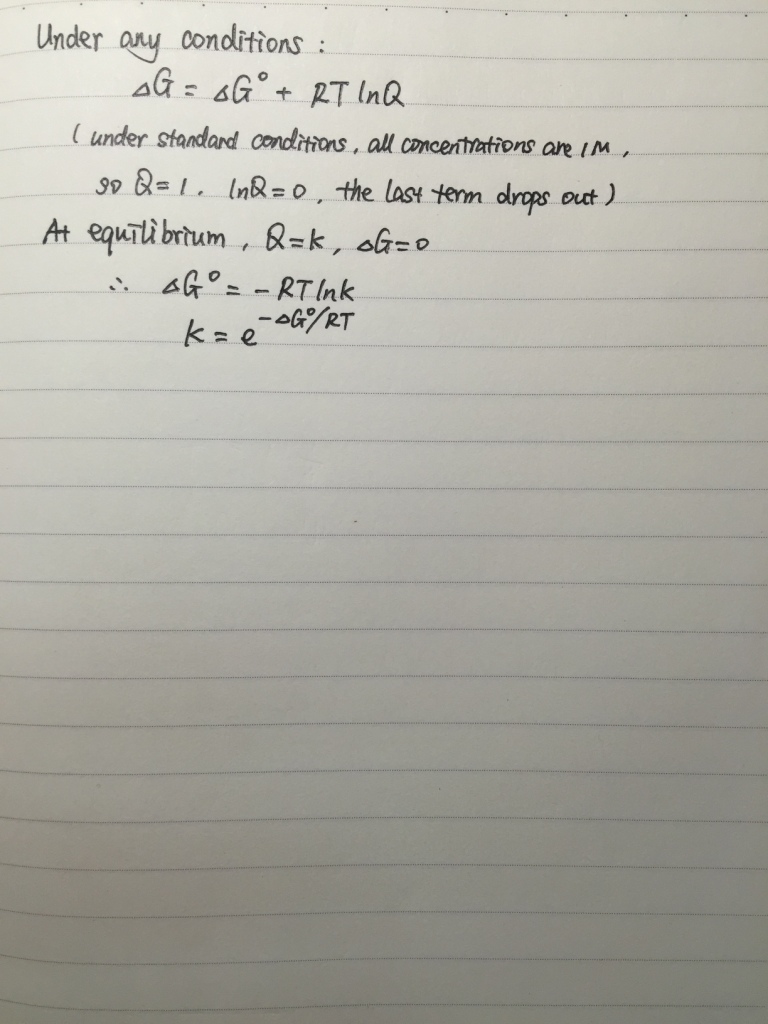 Under any conditions :
△G = △G° + RT lnQ
( under standard conditions, all concentrations are 1M ,
so Q = 1. lnQ = 0 , the last term drops out )
At equilibrium , Q = k , △G = 0
∴ △G° = - RT lnk
k = e^-△G°/RT